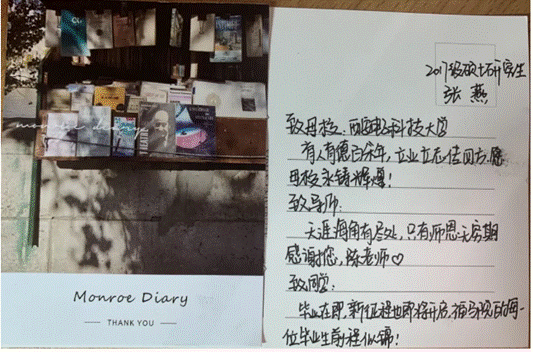 Monroe Diary
THANK YOU
2017级硕士研究生
张燕
致母校:西南科技大学
有人有德百余年,立业立志传四方.愿
母校永铸辉煌!
致导师:
天涯海角有尽处,只有师恩无穷期
感谢您,陈老师♡
致同学:
毕业在即,新征程也即将开启,福马现百的每一
位毕业生前程似锦!